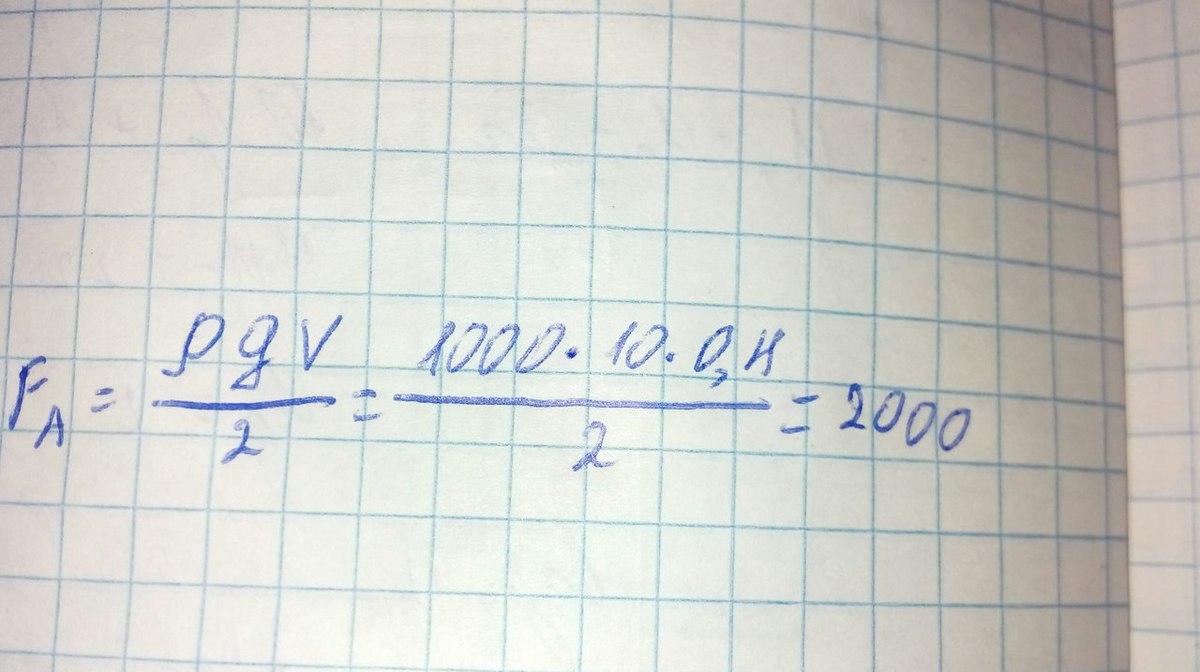 F_A = ρgV/2 = 1000·10·0,4/2 = 2000